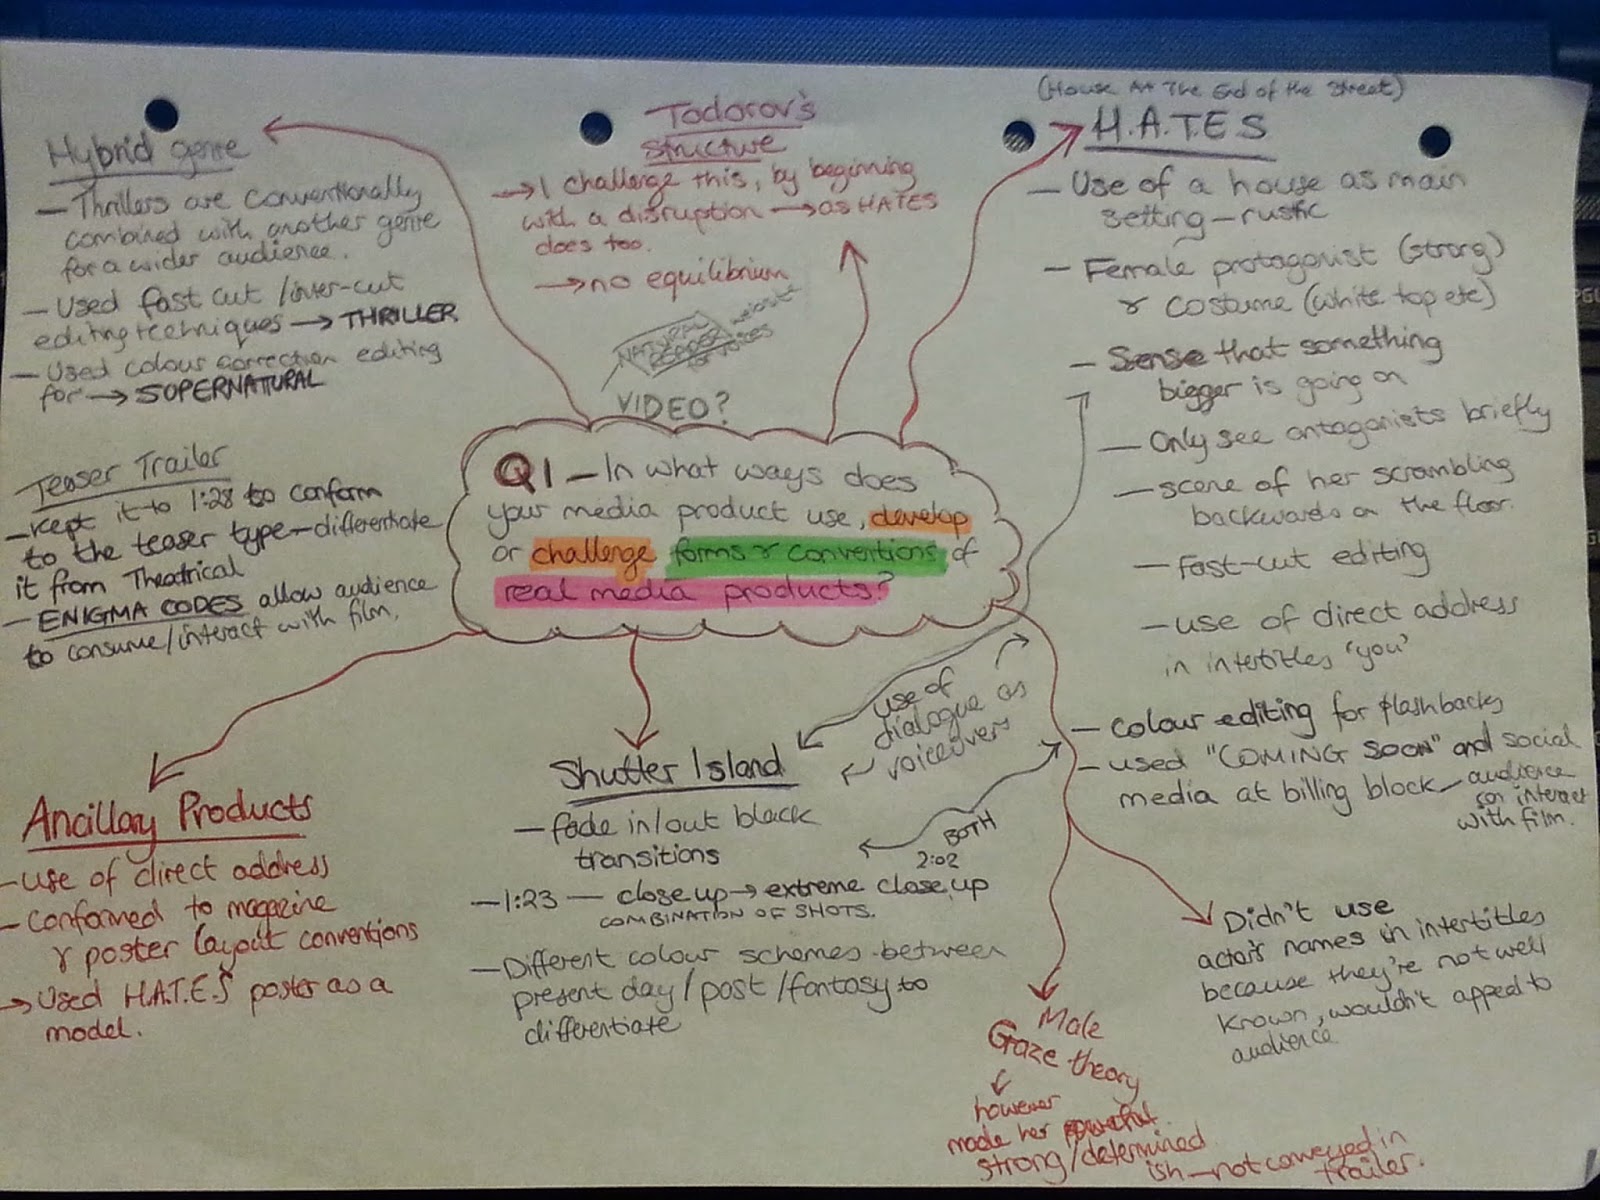 Hybrid genre
– Thrillers are conventionally
combined with another genre
for a wider audience.
– Used fast cut/inter-cut
editing techniques → THRILLER
– Used colour correction editing
for → SUPERNATURAL
Todorov's
structure
→ I challenge this, by beginning
with a disruption → as HATES
does too.
→ no equilibrium
NATURAL
READER website
for voices
VIDEO?
(House At The End of the Street)
H.A.T.E.S
– Use of a house as main
setting – rustic
– Female protagonist (strong)
& costume (white top etc)
– Sense that something
bigger is going on
– Only see antagonists briefly
– scene of her scrambling
backwards on the floor.
– Fast-cut editing
– use of direct address
in intertitles 'you'
– colour editing for flashbacks
– used "COMING SOON" and social
media at billing block – audience
can interact
with film.
Q1 – In what ways does
your media product use, develop
or challenge forms & conventions of
real media products?
Teaser Trailer
– kept it to 1:28 to conform
to the teaser type – differentiate
it from Theatrical
– ENIGMA CODES allow audience
to consume/interact with film.
Ancillary Products
– use of direct address
– conformed to magazine
& poster layout conventions
→ Used H.A.T.E.S poster as a
model.
Shutter Island
– fade in/out black
transitions
– 1:23 – close up → extreme close up
COMBINATION OF SHOTS.
– Different colour schemes between
present day/past/fantasy to
differentiate
use of
dialogue as
voiceovers
BOTH
2:02
Male
Gaze theory
however
made her powerful
strong/determined
ish – not conveyed in
trailer.
Didn't use
actor's names in intertitles
because they're not well
known, wouldn't appeal to
audience